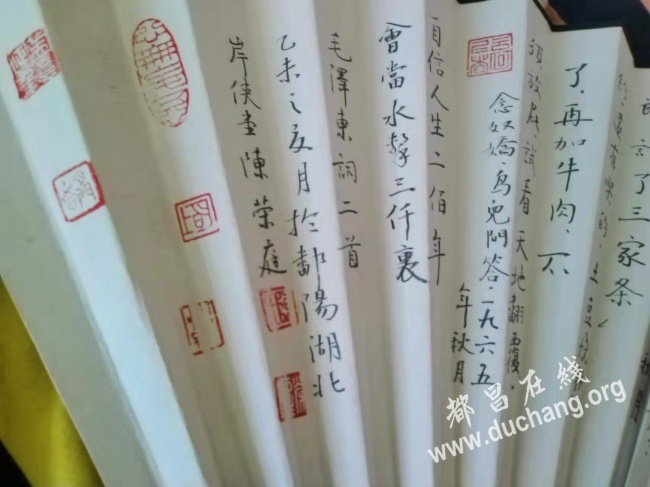 了三家条
了，再加牛肉，不
須放屁試看天地翻覆。
念奴嬌 鸟兒問答 一九六五
年秋月
自信人生二佰年
會當水擊三仟裏
毛澤東詞二首
乙未之亥月於鄱陽湖北
岸俠 陳荣庭
都昌在线
www.duchang.org